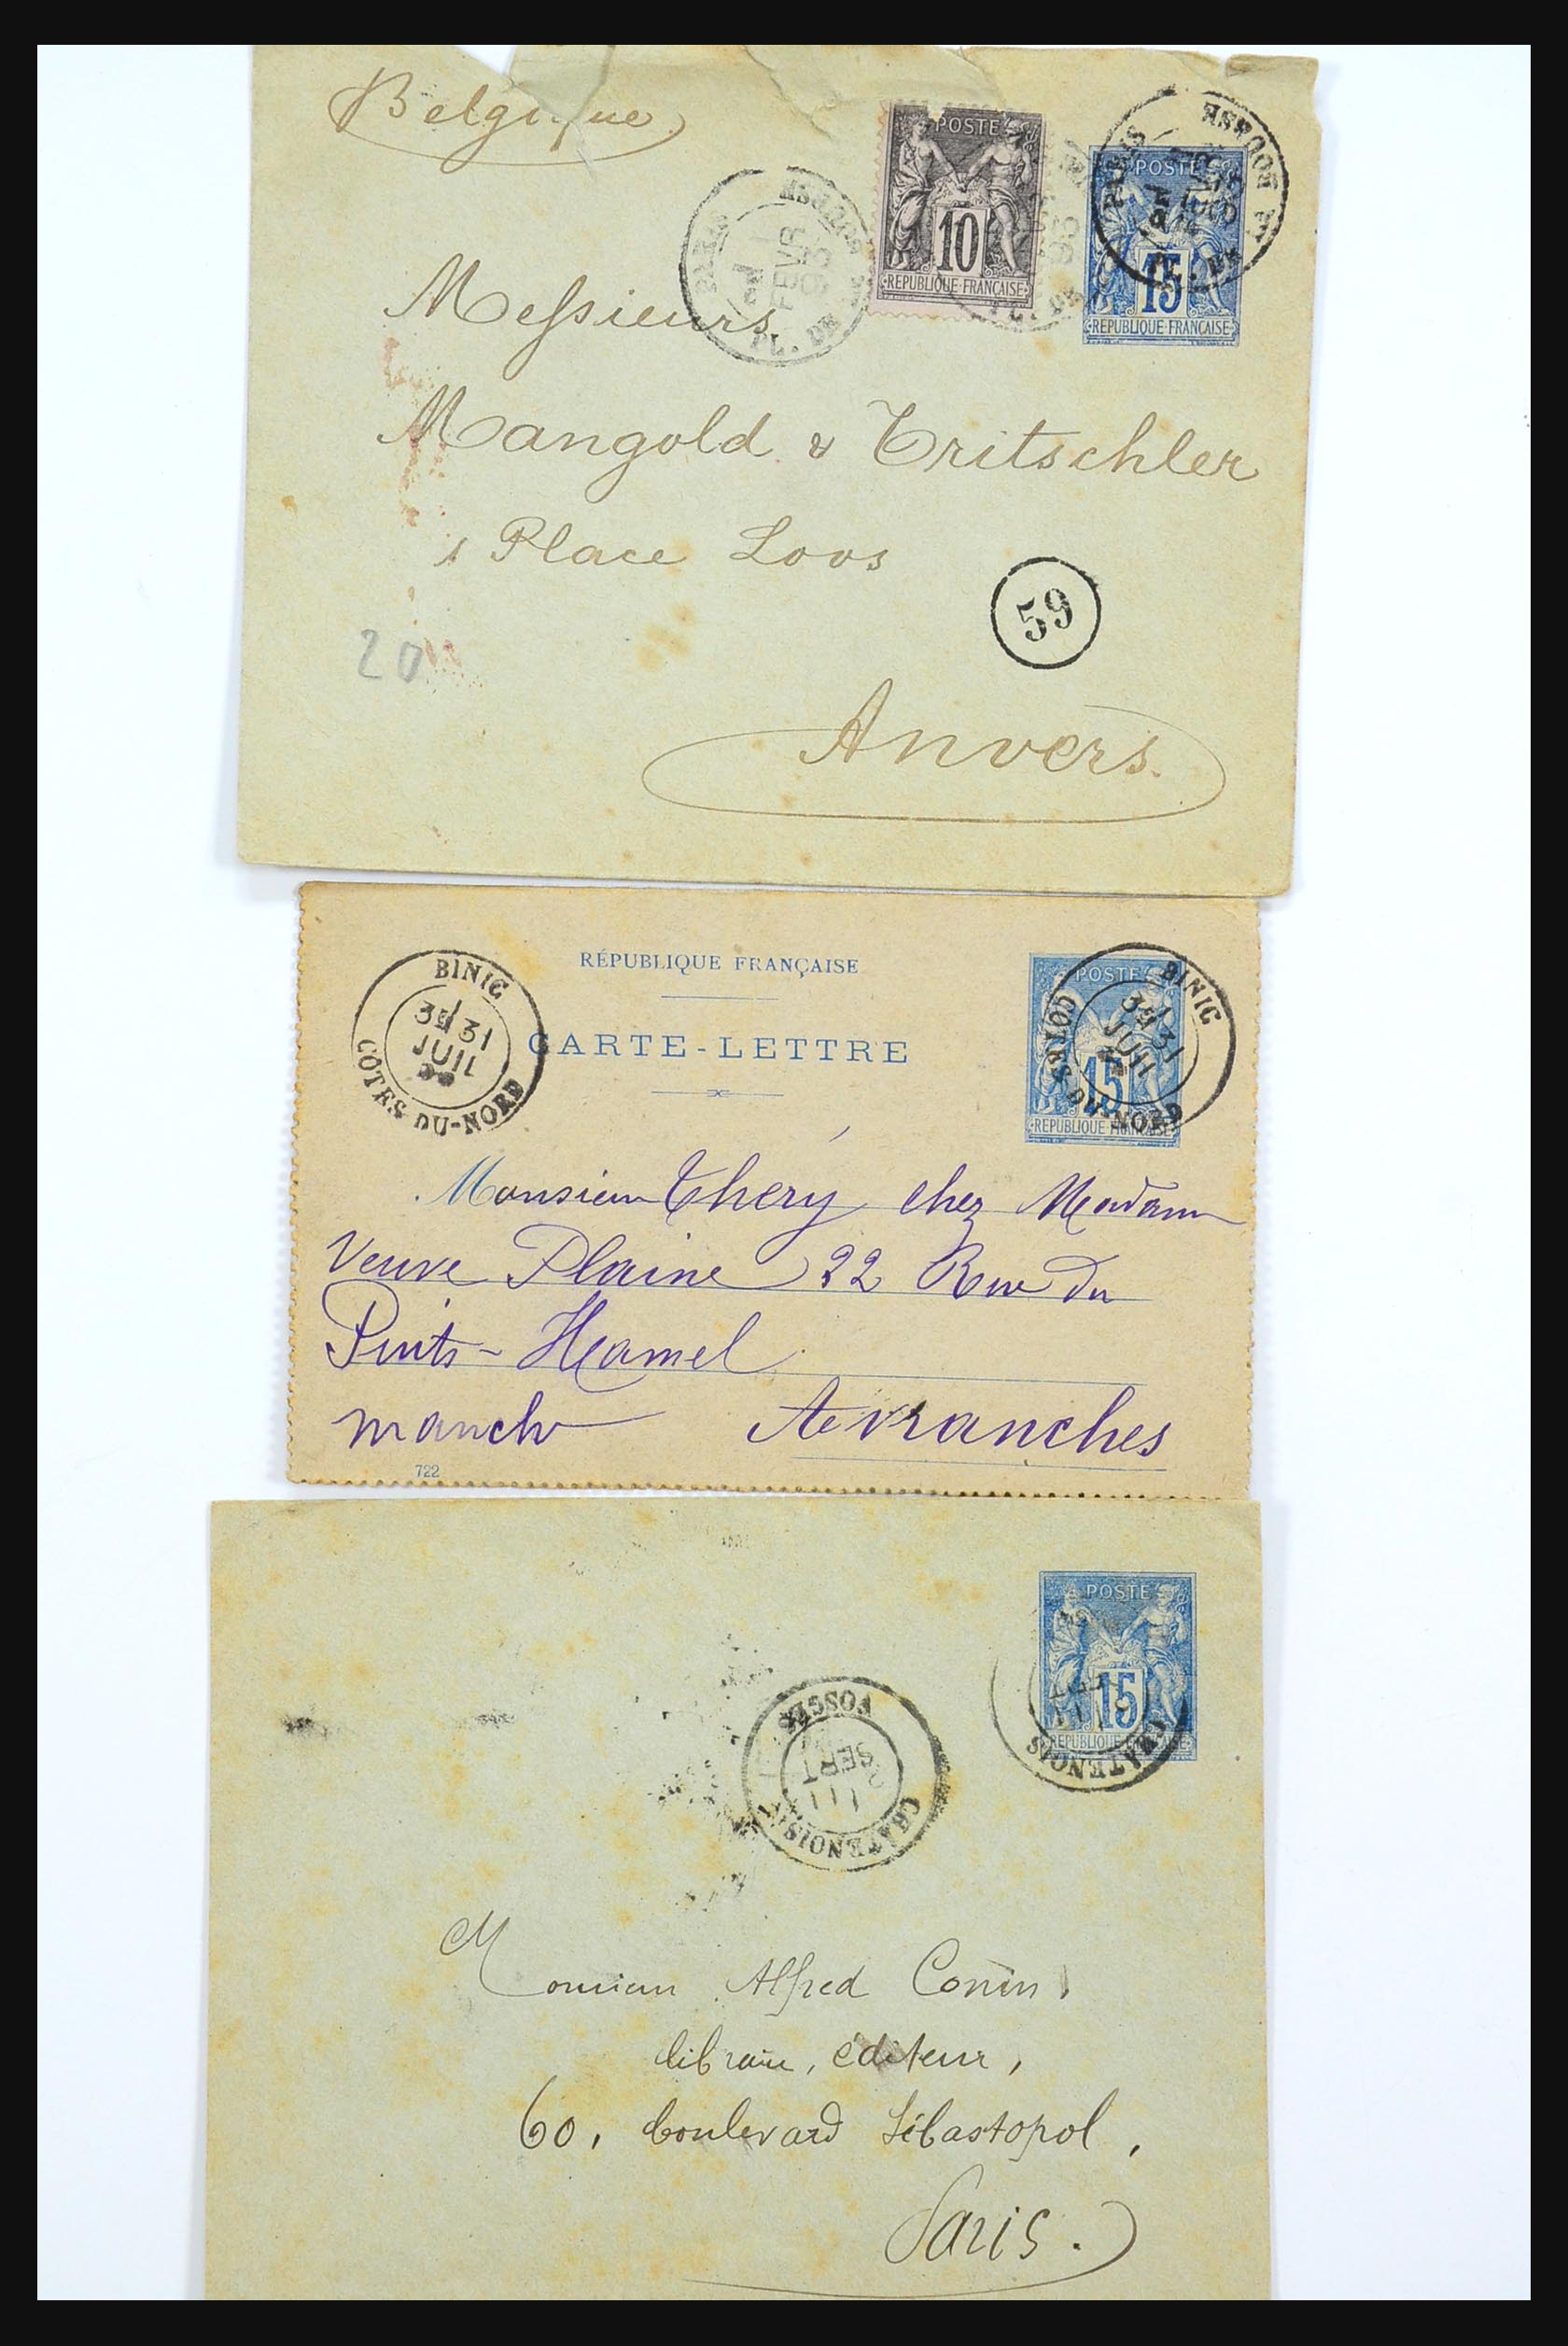 Belgique
POSTE
10
REPUBLIQUE FRANÇAISE
POSTE
15
REPUBLIQUE FRANÇAISE
PARIS
PL. DE LA BOURSE
FEVR
PARIS
PL. DE LA BOURSE
Messieurs
Mangold & Tritschler
1 Place Loos
59
20
Anvers.
RÉPUBLIQUE FRANÇAISE
CARTE-LETTRE
BINIC
3E 31
JUIL
COTES-DU-NORD
POSTE
15
REPUBLIQUE FRANÇAISE
BINIC
3E 31
JUIL
COTES-DU-NORD
Monsieur Théry chez Madame
Veuve Plaine 22 Rue du
Puits-Hamel
manche Avranches
722
POSTE
15
REPUBLIQUE FRANÇAISE
CHATENOIS
VOSGES
SEPT
CHATENOIS
Monsieur Alfred Conin,
libraire, éditeur,
60, boulevard Sébastopol,
Paris.